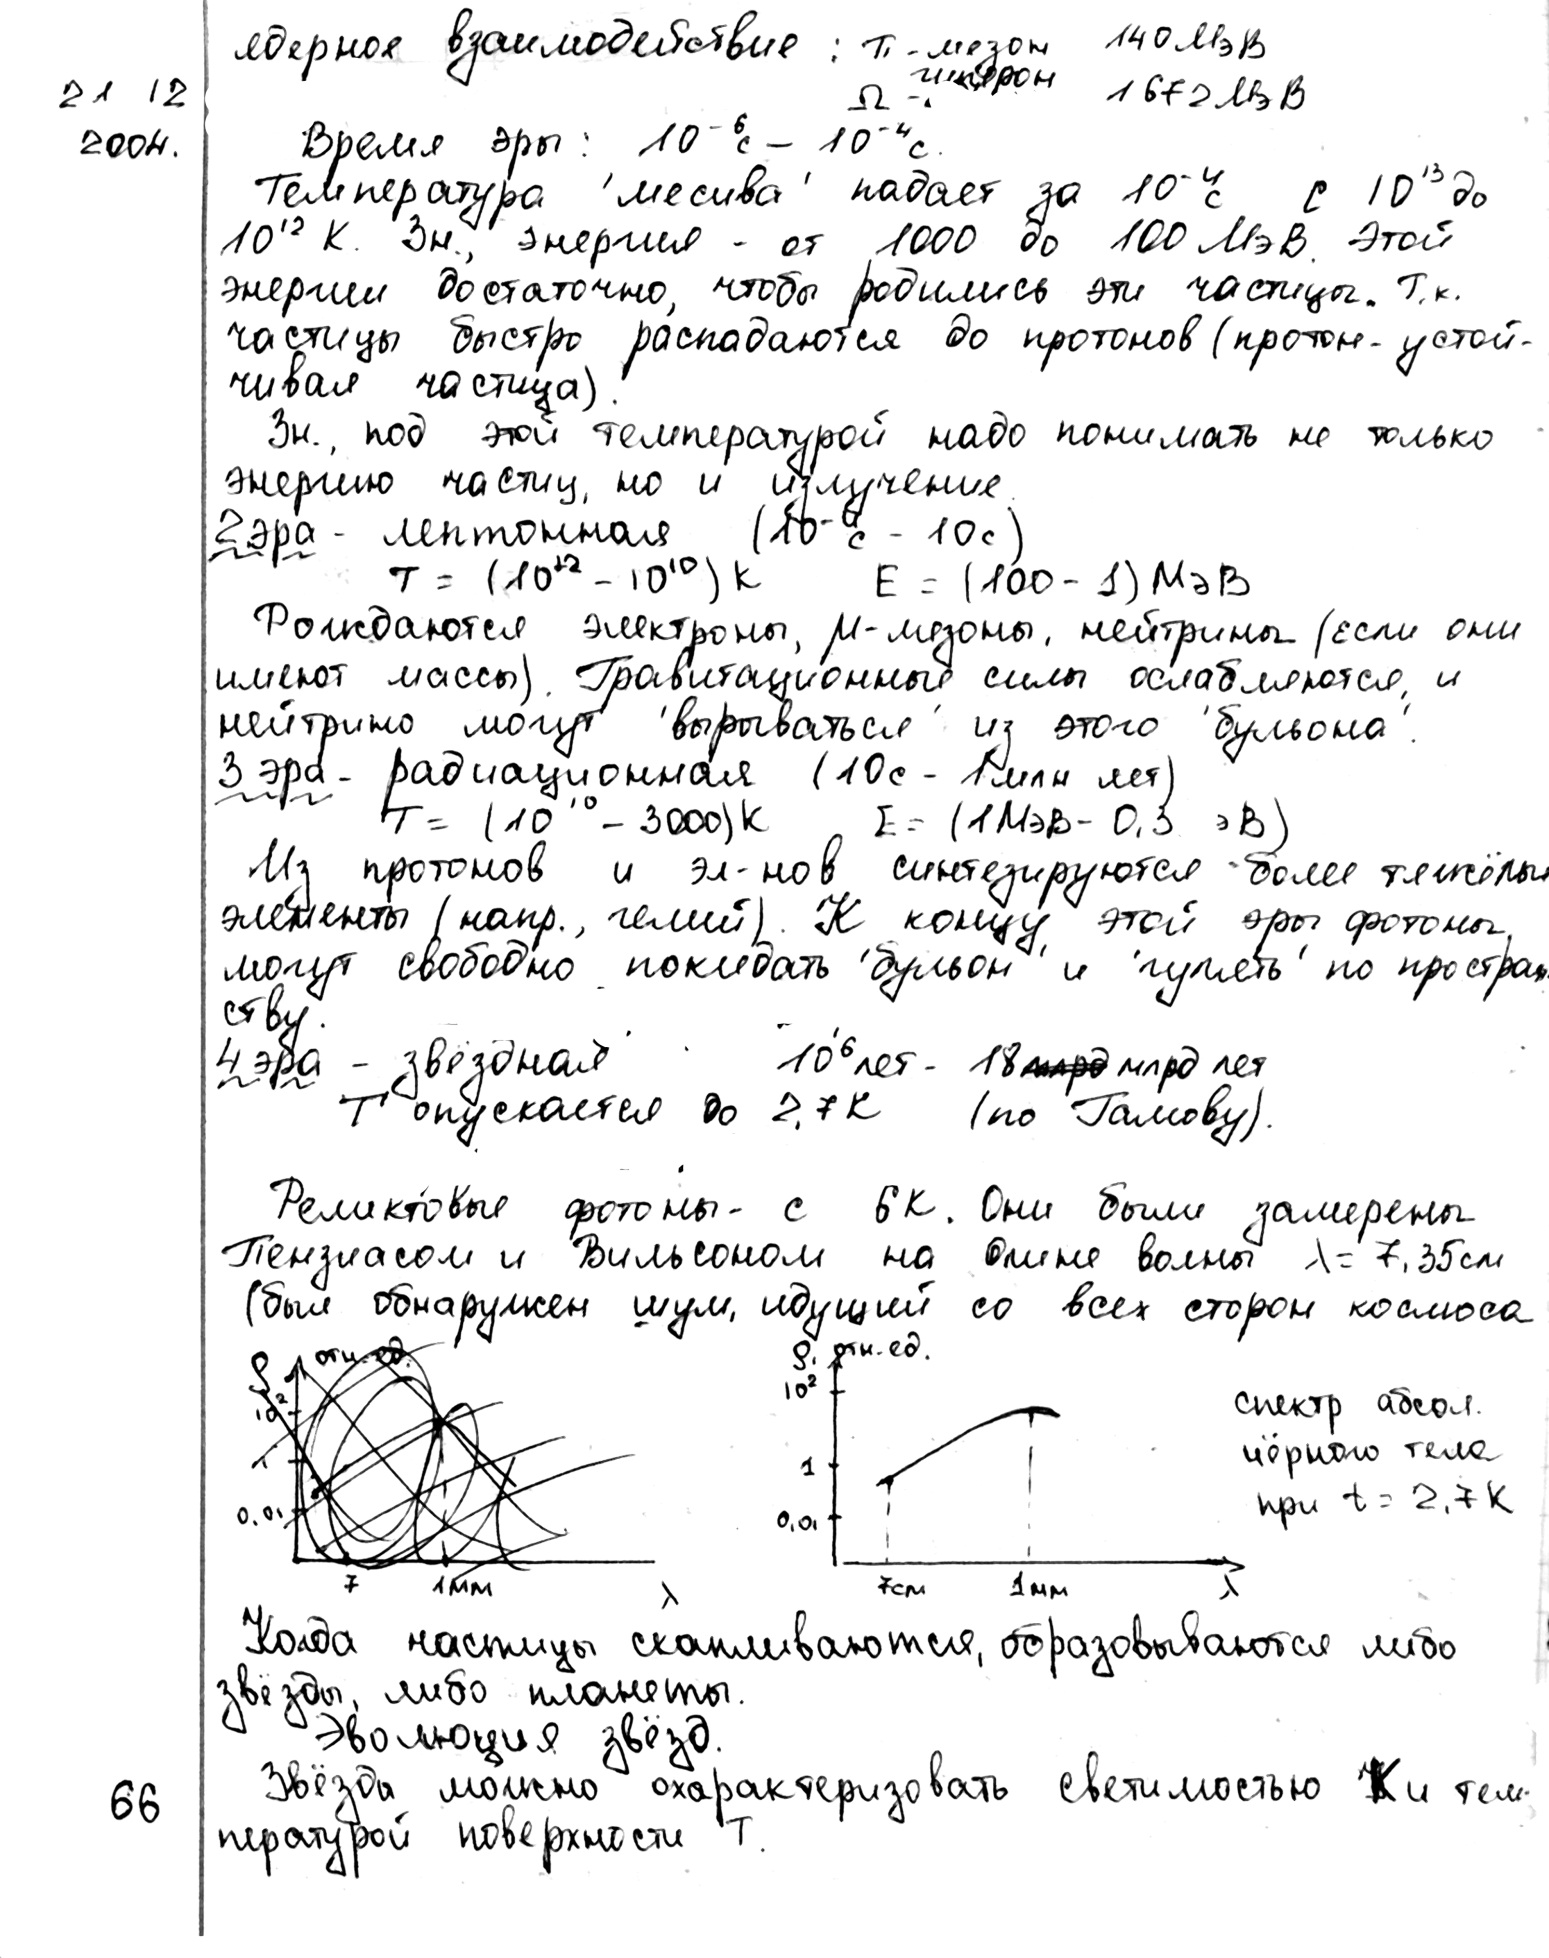 ядерное взаимодействие : π - мезон 140 МэВ
Ω - гиперон 1672 МэВ
21 12
2004.
Время эры: 10⁻⁶с – 10⁻⁴с.
Температура 'месива' падает за 10⁻⁴с с 10¹³ до
10¹² К. Зн., энергия - от 1000 до 100 МэВ. Этой
энергии достаточно, чтобы родились эти частицы. Т.к.
частицы быстро распадаются до протонов (протон - устой-
чивая частица).
Зн., под этой температурой надо понимать не только
энергию частиц, но и излучение.
2 эра - лептонная (10⁻⁴с - 10с)
T = (10¹² – 10¹⁰) К E = (100 - 1) МэВ
Рождаются электроны, μ-мезоны, нейтрины (если они
имеют массы). Гравитационные силы ослабляются, и
нейтрино могут 'вырываться' из этого 'бульона'.
3 эра - радиационная (10с - 1 млн лет)
T = (10¹⁰ – 3000) К E = (1МэВ - 0,3 эВ)
Из протонов и эл-нов синтезируются более тяжёлые
элементы (напр., гелий). К концу этой эры фотоны
могут свободно покидать 'бульон' и 'гулять' по простран
ству.
4 эра - звёздная 10⁶ лет - 18 млрд млрд лет
T опускается до 2,7К (по Гамову).
Реликтовые фотоны - с 6К. Они были замерены
Пензиасом и Вильсоном на длине волны λ = 7,35см
(был обнаружен шум, идущий со всех сторон космоса
ρ отн. ед.
10²
1
0,01
7 1мм λ
ρ, отн. ед.
10²
1
0,01
7см 1мм λ
спектр абсол.
чёрного тела
при t = 2,7К
Когда частицы скапливаются, образовываются либо
звёзды, либо планеты.
Эволюция звёзд.
Звёзды можно охарактеризовать светимостью К и тем-
пературой поверхности T.
66